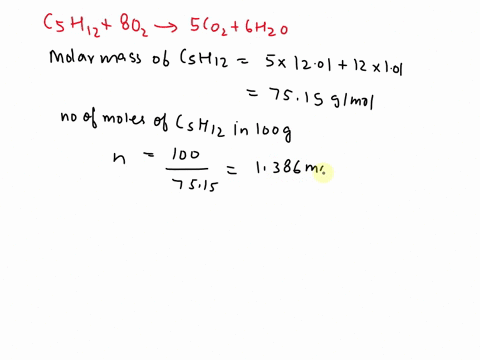 C5H12 + 8O2 → 5CO2 + 6H2O
Molar mass of C5H12 = 5 x 12.01 + 12 x 1.01
= 75.15 g/mol
no of moles of C5H12 in 100g
n = 100/75.15 = 1.386 mo